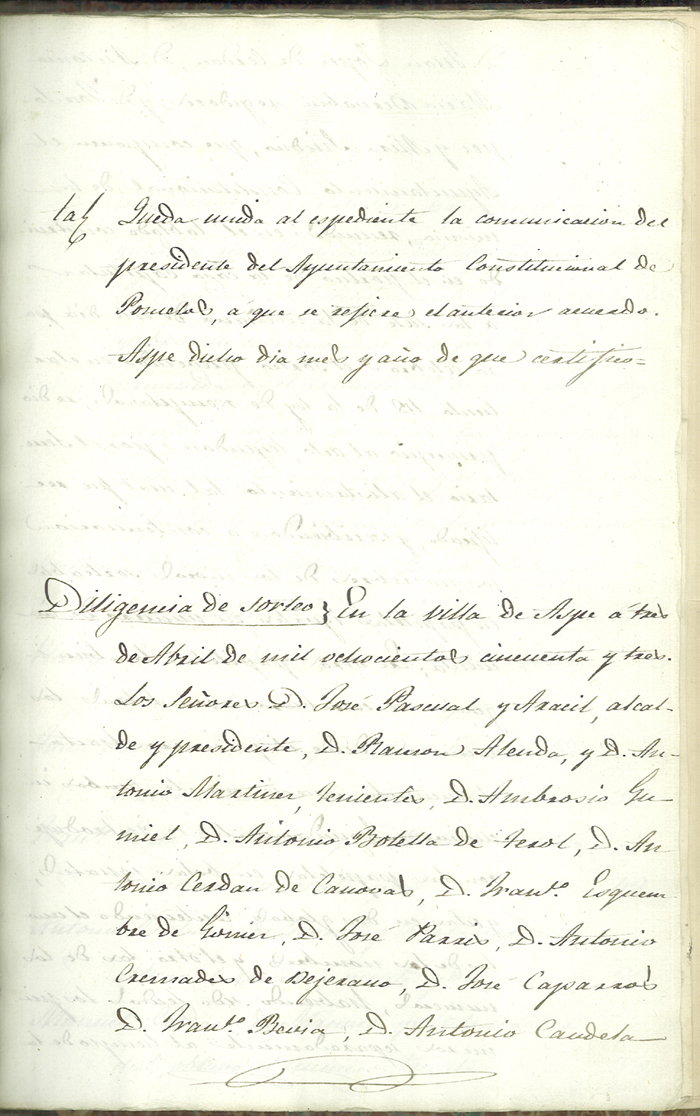 Queda unida al espediente la comunicacion del
presidente del Ayuntamiento Constitucional de
a que se refiere el anterior acuerdo.
Aspe dicho dia mes y año de que certifico=
Diligencia de sorteo} En la villa de Aspe á tres
de Abril de mil ochocientos cincuenta y tres.
Los Señores D. José Pascual y Aracil, alcal-
de y presidente, D. Ramon Alenda, y D. An-
tonio Martinez, tenientes, D. Ambrosio Gu-
miel, D. Antonio Botella de Terol, D. An
tonio Cerdan de Canovas, D. Fran.co Esquem-
bre de Gomez, D. José Parris, D. Antonio
Cremades de Bejerano, D. José Caparros
D. Fran.co Bevia, D. Antonio Candela